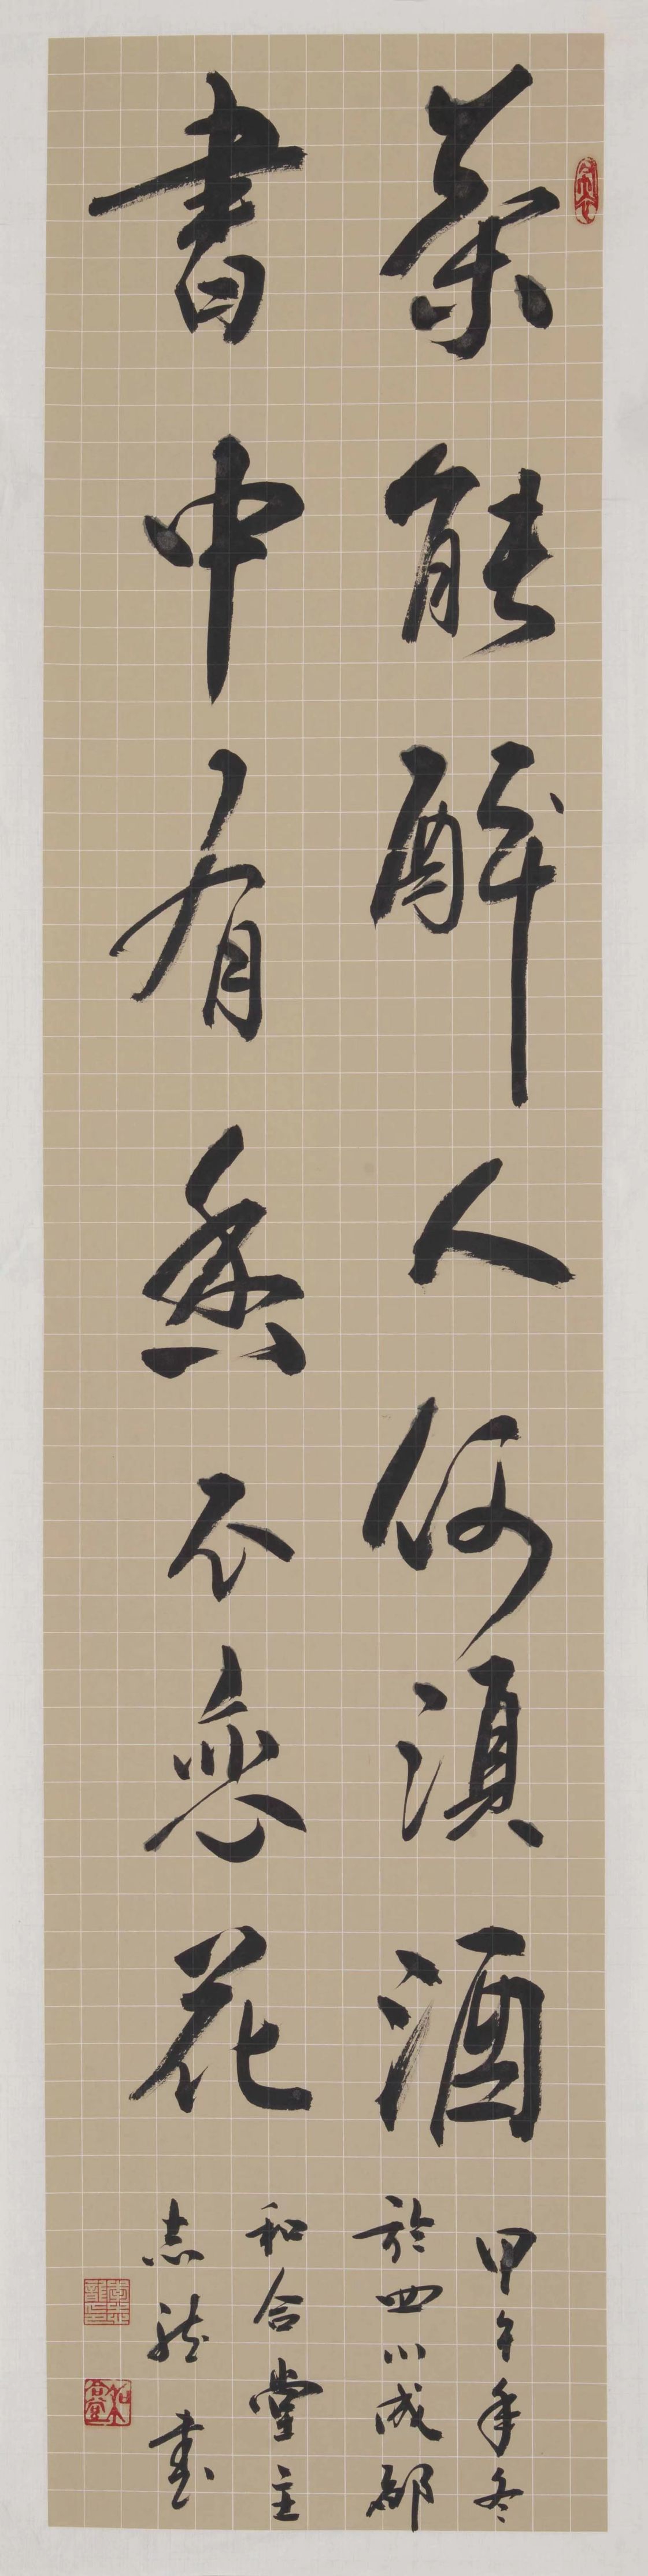 茶能醉人何須酒
書中有香不戀花
甲午年冬
於四川成都
和合堂主
志龍書